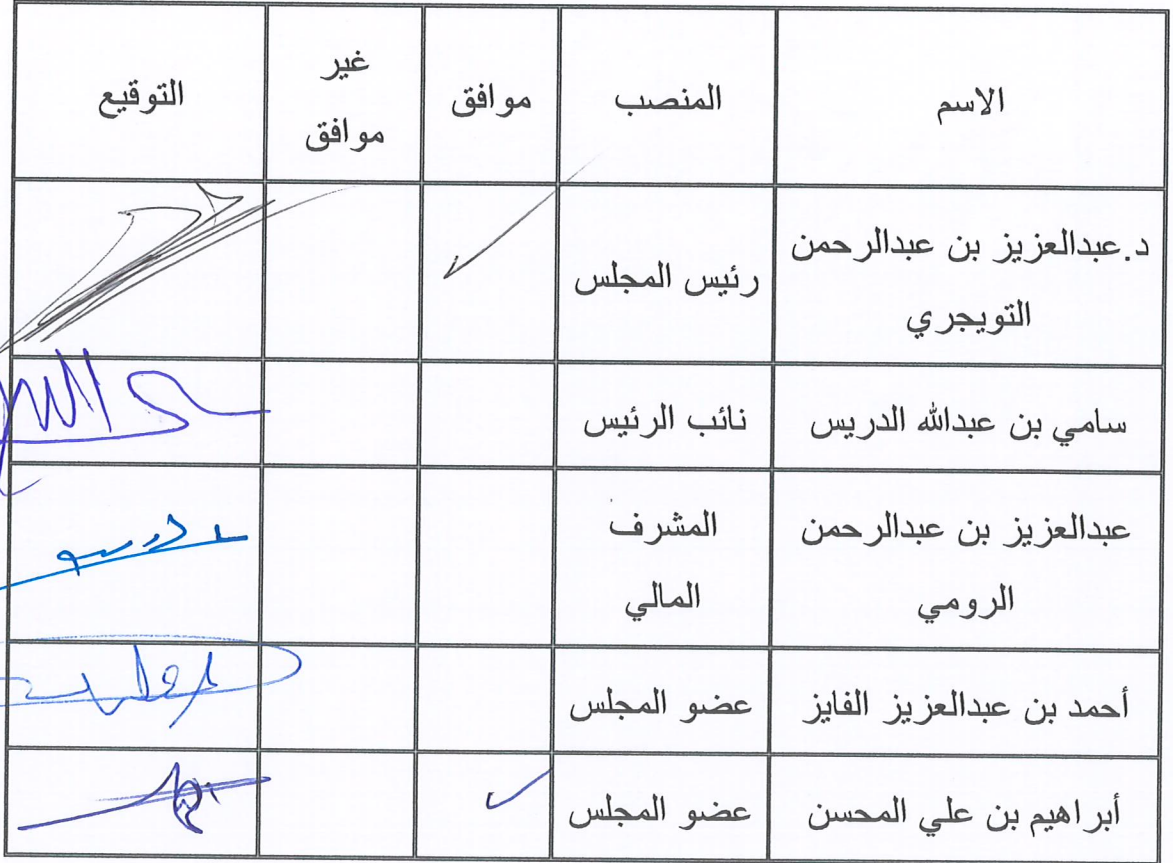 الاسم
المنصب
موافق
غير
موافق
التوقيع
د.عبدالعزيز بن عبدالرحمن
التويجري
رئيس المجلس
سامي بن عبدالله الدريس
نائب الرئيس
عبدالعزيز بن عبدالرحمن
الرومي
المشرف
المالي
أحمد بن عبدالعزيز الفايز
عضو المجلس
أبراهيم بن علي المحسن
عضو المجلس